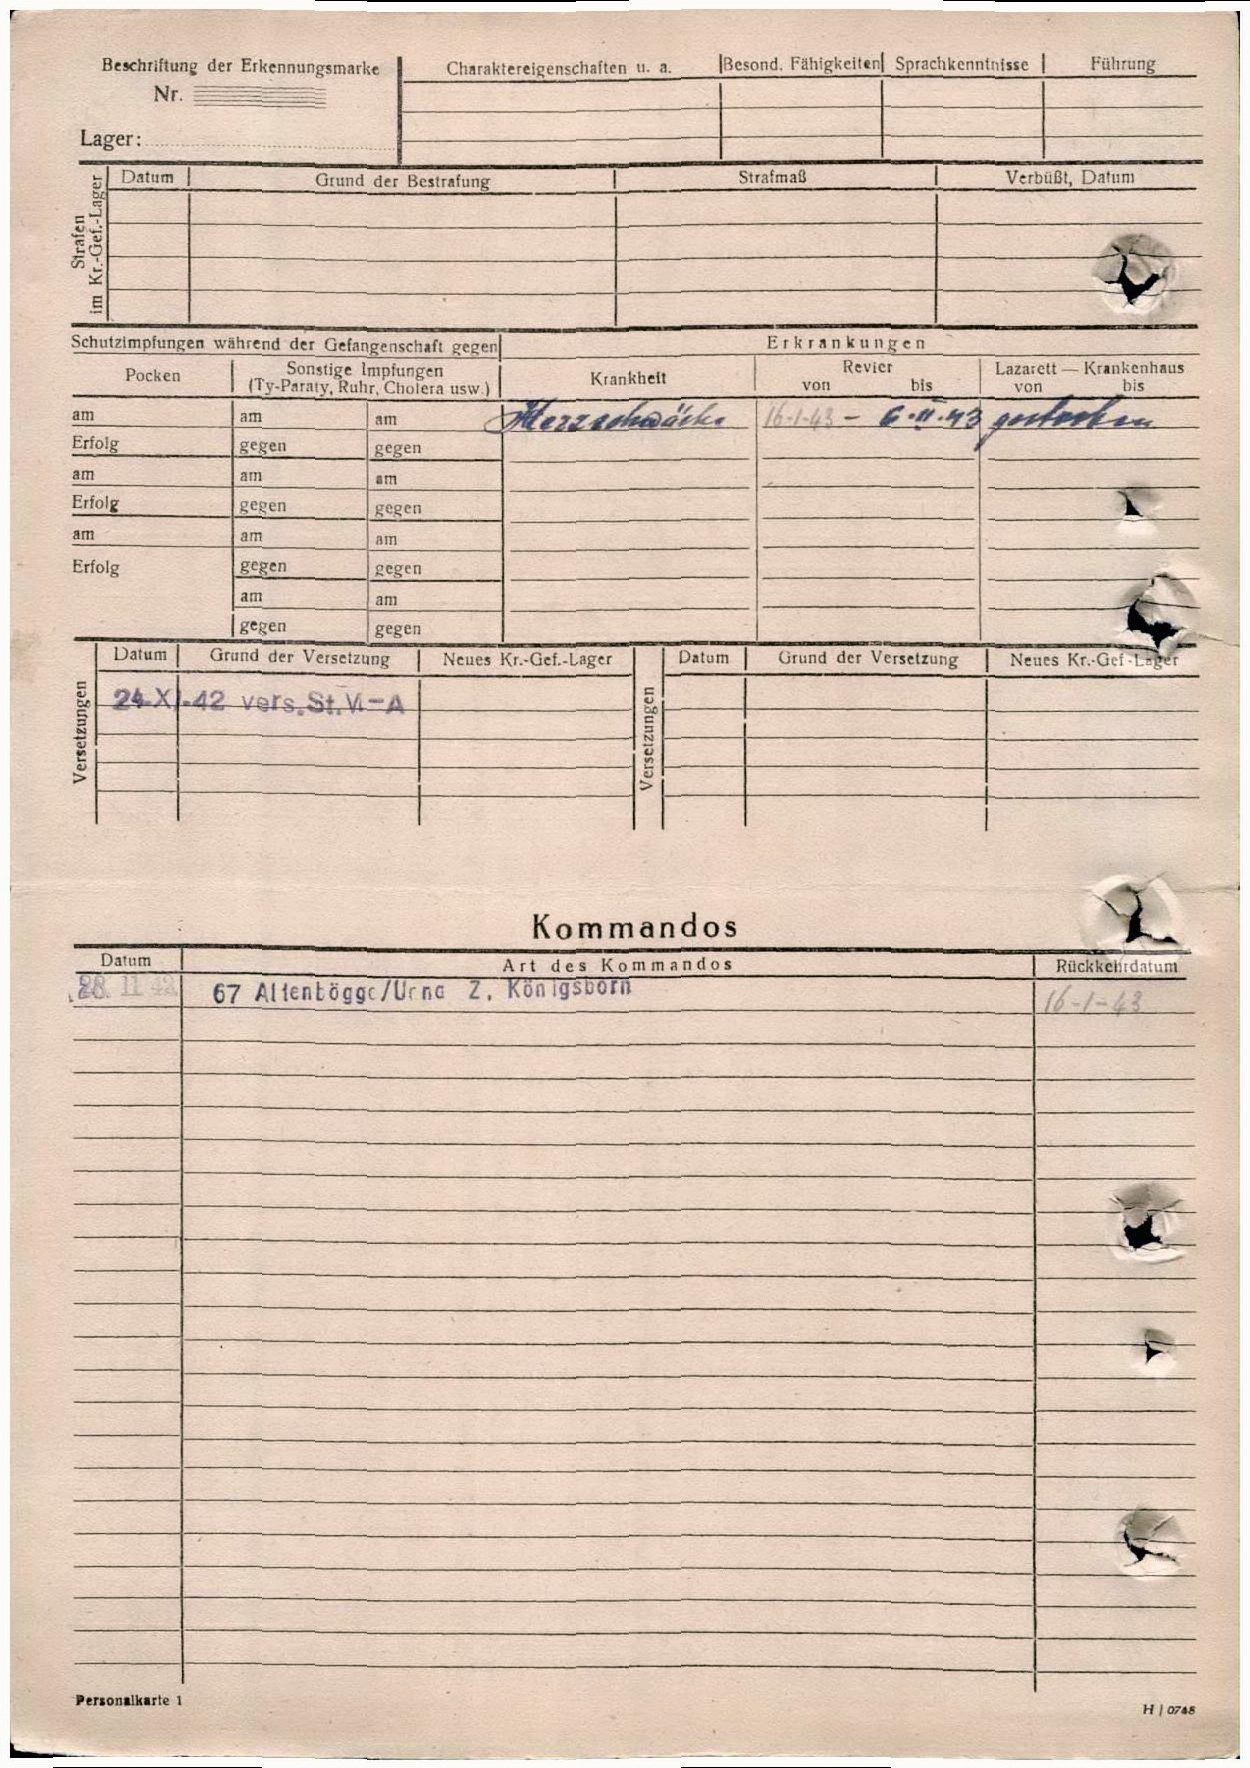 Beschriftung der Erkennungsmarke
Nr.
Lager:
Charaktereigenschaften u. a.
Besond. Fähigkeiten
Sprachkenntnisse
Führung
Strafen
im Kr.-Gef.-Lager
Datum
Grund der Bestrafung
Strafmaß
Verbüßt, Datum
Schutzimpfungen während der Gefangenschaft gegen
Erkrankungen
Pocken
Sonstige Impfungen
(Ty-Paraty, Ruhr, Cholera usw.)
Krankheit
Revier
von bis
Lazarett — Krankenhaus
von bis
am am am Herzschwäche 16-1-43 - 6.II.43 gestorben
Erfolg gegen gegen
am am am
Erfolg gegen gegen
am am am
Erfolg gegen gegen
am am
gegen gegen
Versetzungen
Datum Grund der Versetzung Neues Kr.-Gef.-Lager
24.XI.42 vers. St. VI-A
Versetzungen
Datum Grund der Versetzung Neues Kr.-Gef.-Lager
Kommandos
Datum Art des Kommandos Rückkehrdatum
28. 11 42 67 Altenbögge/Unna Z, Königsborn 16-1-43
Personalkarte 1
H / 0748